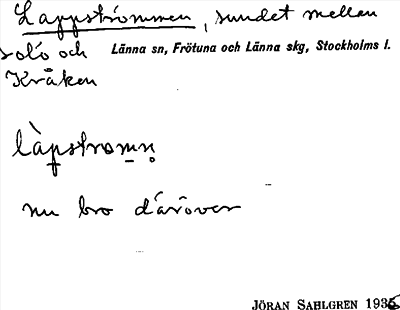 Lappströmmen, sundet mellan
solö och Länna sn, Frötuna och Länna skg, Stockholms l.
Kråken
làpstromn
nu bro däröver
JÖRAN SAHLGREN 1935